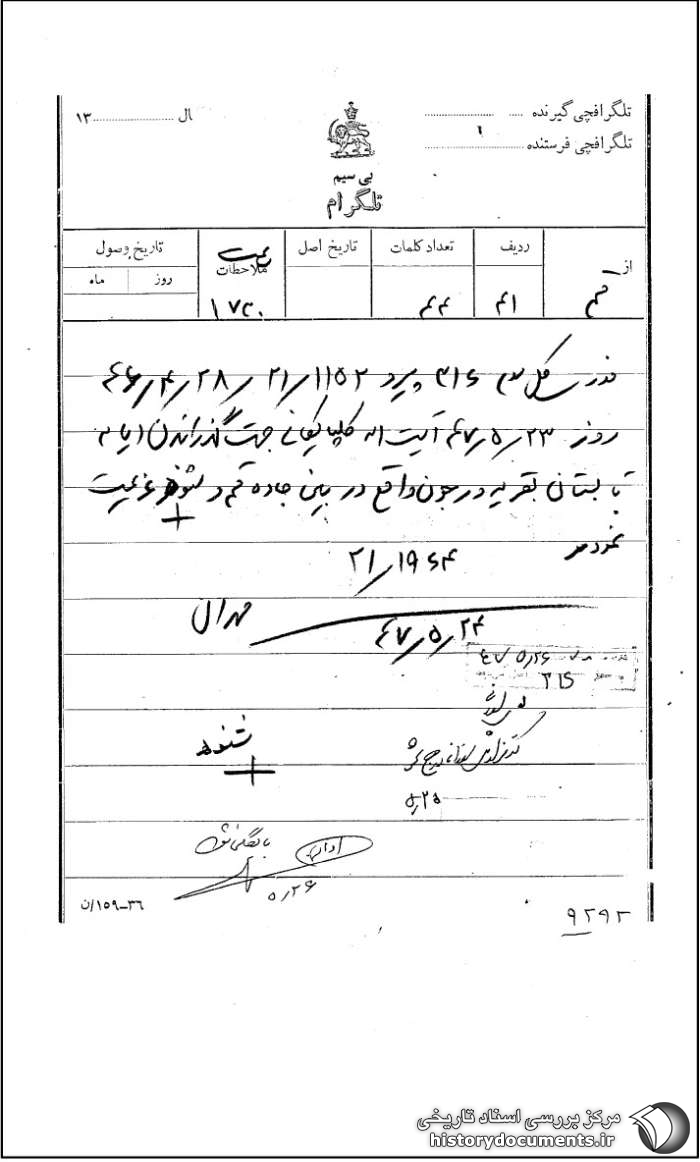 تلگرافچی گیرنده
تلگرافچی فرستنده
ال ۱۳
بی سیم
تلگرام
از
ردیف
تعداد کلمات
تاریخ اصل
ملاحظات
تاریخ وصول
روز
ماه
قم
۴۱
۴۴
۱۷۳۰
۳۱۶ پیرو ۲۱/۱۱۵۲ ـ ۴۶/۴/۲۸
روز ۴۷/۵/۲۳ آیت اله گلپایگانی جهت گذراندن ایام
تابستان بقریه ورجون واقع در بین جاده قم و عزیمت
نمودند
۲۱/۱۹۶۴
مهران
۴۷/۵/۲۴
۴۷/۵/۲۶
۳۱۶
شنوه
۵/۲۵
بایگانی شود
۵/۲۶
ن/۱۵۹-۳۶
۹۲۹۲
مرکز بررسی اسناد تاریخی
historydocuments.ir